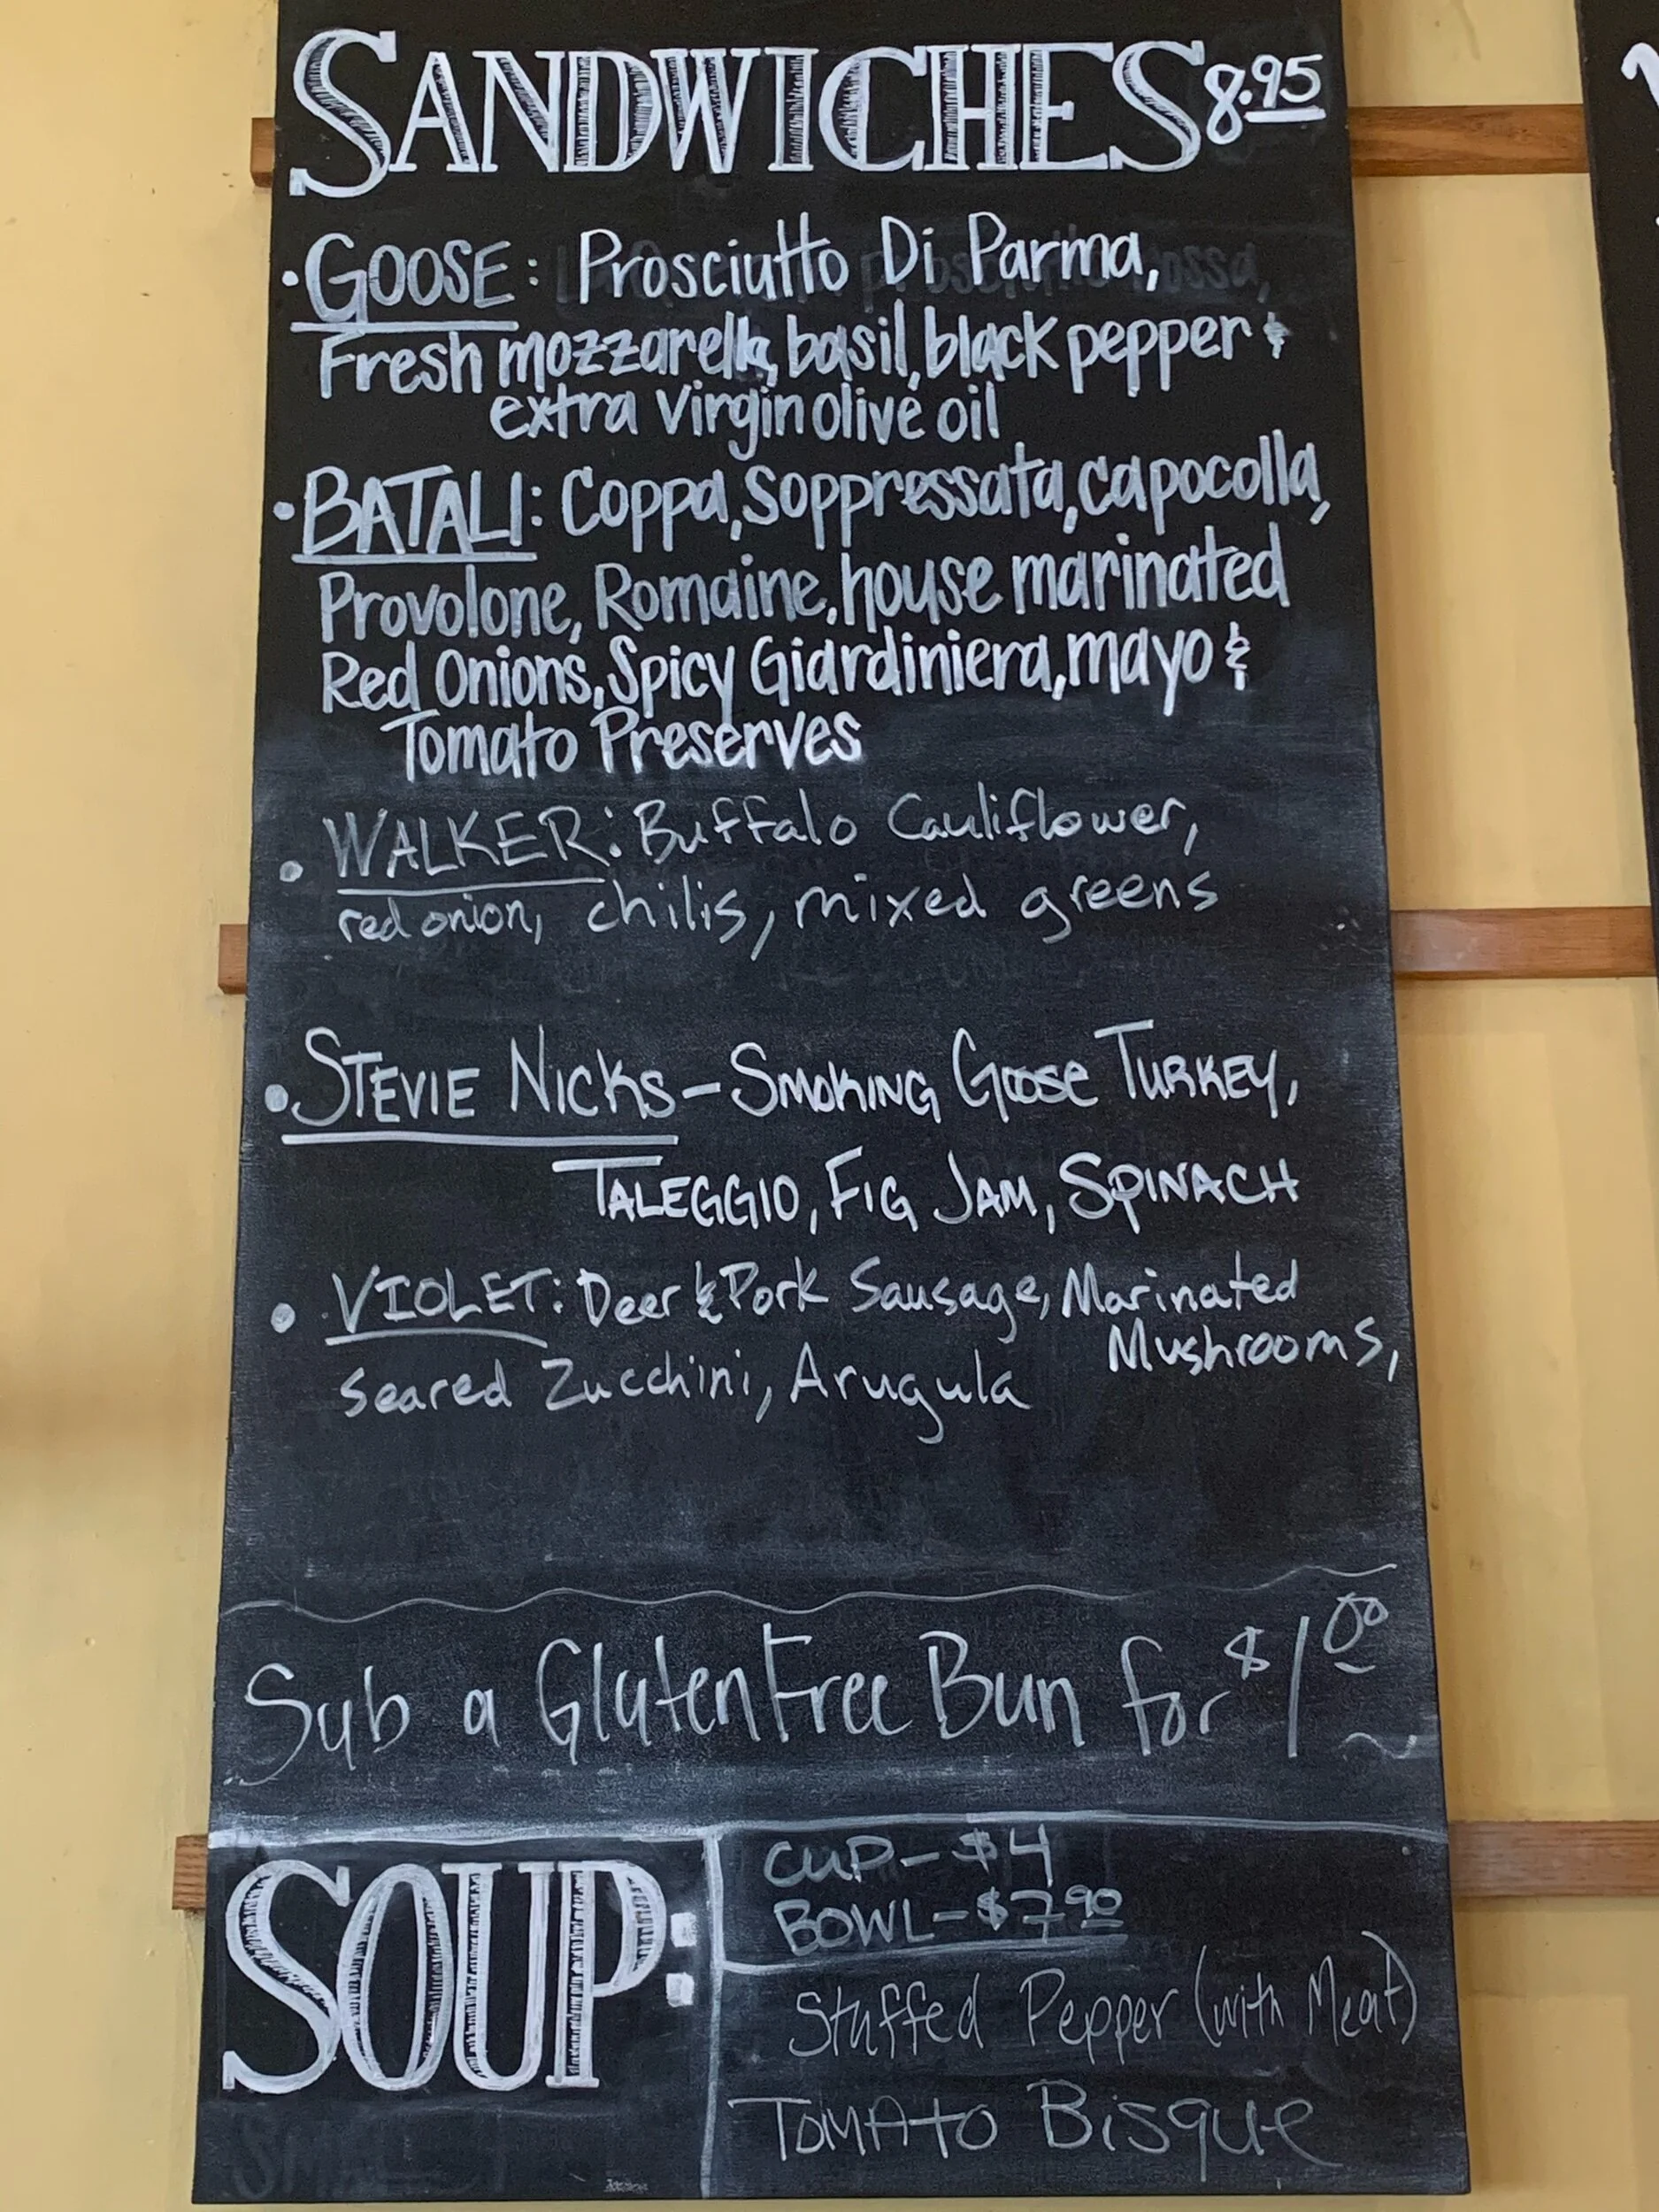 SANDWICHES 8.95
• GOOSE: Prosciutto Di Parma,
Fresh mozzarella, basil, black pepper &
extra Virgin olive oil
• BATALI: Coppa, Soppressata, capocolla,
Provolone, Romaine, house marinated
Red Onions, Spicy Giardiniera, mayo &
Tomato Preserves
• WALKER: Buffalo Cauliflower,
red onion, chilis, mixed greens
• STEVIE NICKS – SMOKING GOOSE TURKEY,
TALEGGIO, FIG JAM, SPINACH
• VIOLET: Deer & Pork Sausage, Marinated
Mushrooms,
seared Zucchini, Arugula
Sub a Gluten Free Bun for $1.00
SOUP:
CUP – $4
BOWL – $7.90
Stuffed Pepper (with Meat)
TOMATO Bisque